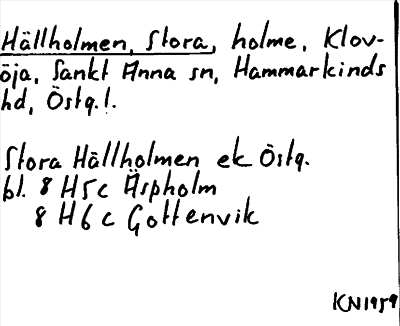 Hällholmen, Stora, holme, Klov-
öja, Sankt Anna sn, Hammarkinds
hd, Östg.l.
Stora Hällholmen ek Östg.
bl. 8 H5c Äspholm
8 H6c Gottenvik
KN1959